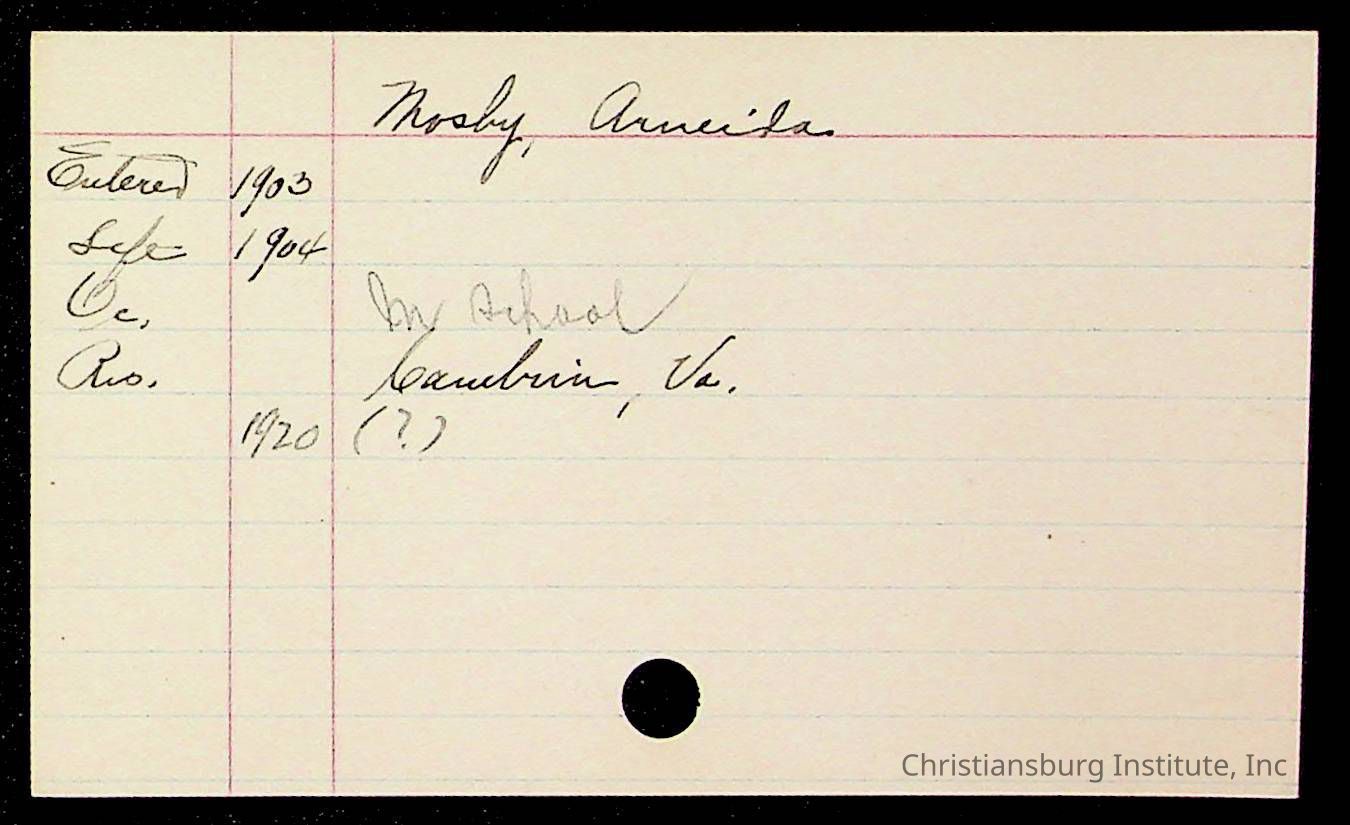 Mosby, Arneida
Entered 1903
Left 1904
Oc. In School
Res. Cambria, Va.
1920 (?)
Christiansburg Institute, Inc